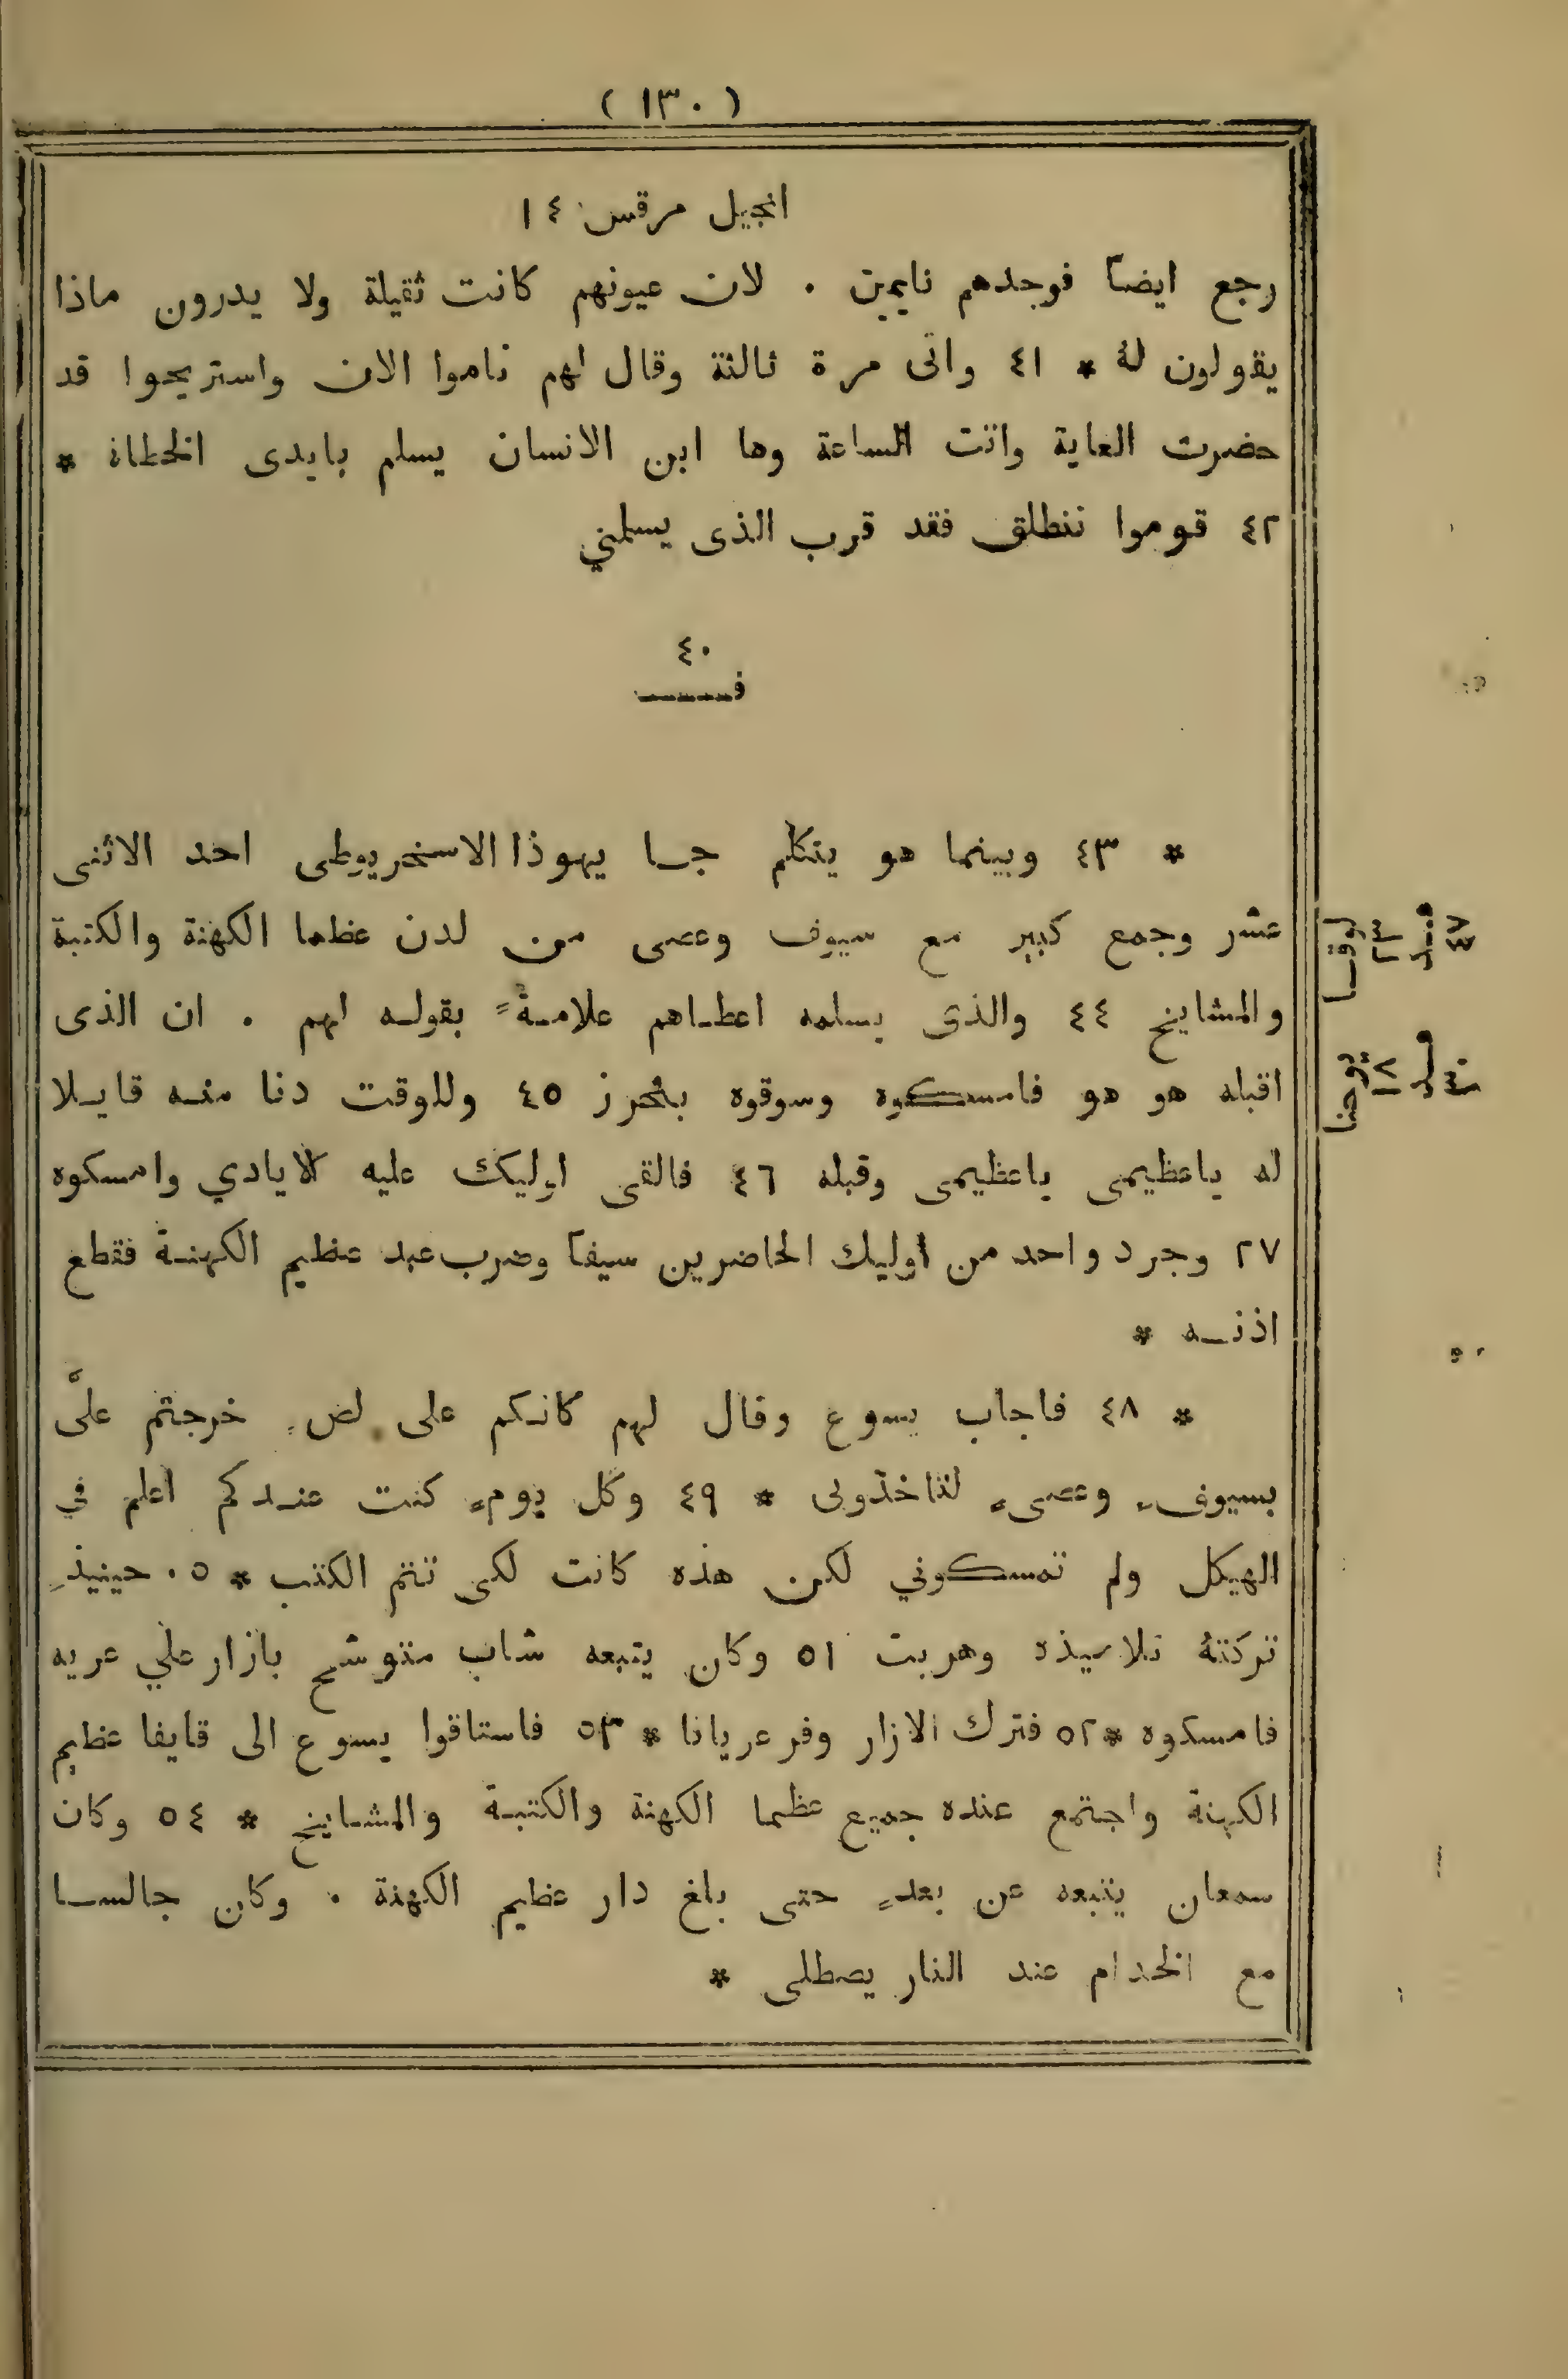 ( ١٣٠ )
انجيل مرقس ١٤
رجع ايضاً فوجدهم نايمين . لان عيونهم كانت ثقيلة ولا يدرون ماذا
يقولون لهُ * ٤١ واتى مرة ثالثة وقال لهم ناموا الان واستريحوا قد
حضرت الغاية واتت الساعة وها ابن الانسان يسلم بايدى الخطاة *
٤٢ قوموا ننطلق فقد قرب الذى يسلمني
٤٠
فـــــ
* ٤٣ وبينما هو يتكلم جـا يهوذا الاسخريوطى احد الاثنى
عشر وجمع كبير مع سيوف وعصى من لدن عظما الكهنة والكتبة
والمشايخ ٤٤ والذى يسلمه اعطـاهم علامـةً بقولـه لهم . ان الذى
اقبله هو هو فامسكوه وسوقوه بتحرز ٤٥ وللوقت دنا منـه قايـلا
له ياعظيمى ياعظيمى وقبله ٤٦ فالقى اوليك عليه الايادي وامسكوه
٢٧ وجرد واحد من اوليك الحاضرين سيفاً وضرب عبد عظيم الكهنـة فقطع
اذنـه *
* ٤٨ فاجاب يسوع وقال لهم كانـكم على لصٍ خرجتم علىَّ
بسيوفٍ وعصىٍ لتاخذونى * ٤٩ وكل يومٍ كنت عنـدكم اعلم في
الهيكل ولم تمسكوني لكن هذه كانت لكى تتم الكتب * ٥٠ حينيذٍ
تركتهُ تلاميذه وهربت ٥١ وكان يتبعه شاب متوشح بازار علي عريه
فامسكوه * ٥٢ فترك الازار وفر عريانا * ٥٣ فاستاقوا يسوع الى قايفا عظيم
الكهنة واجتمع عنده جميع عظما الكهنة والكتبـة والمشـايخ * ٥٤ وكان
سمعان يتبعه عن بعدٍ حتى بلغ دار عظيم الكهنة . وكان جالسـا
مع الخدام عند النار يصطلى *
لوقـا
٢٣
٤٧
يوحنا
١٨